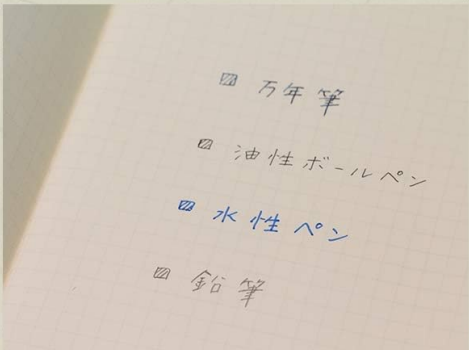 ▨ 万年筆
▨ 油性ボールペン
▨ 水性ペン
▨ 鉛筆